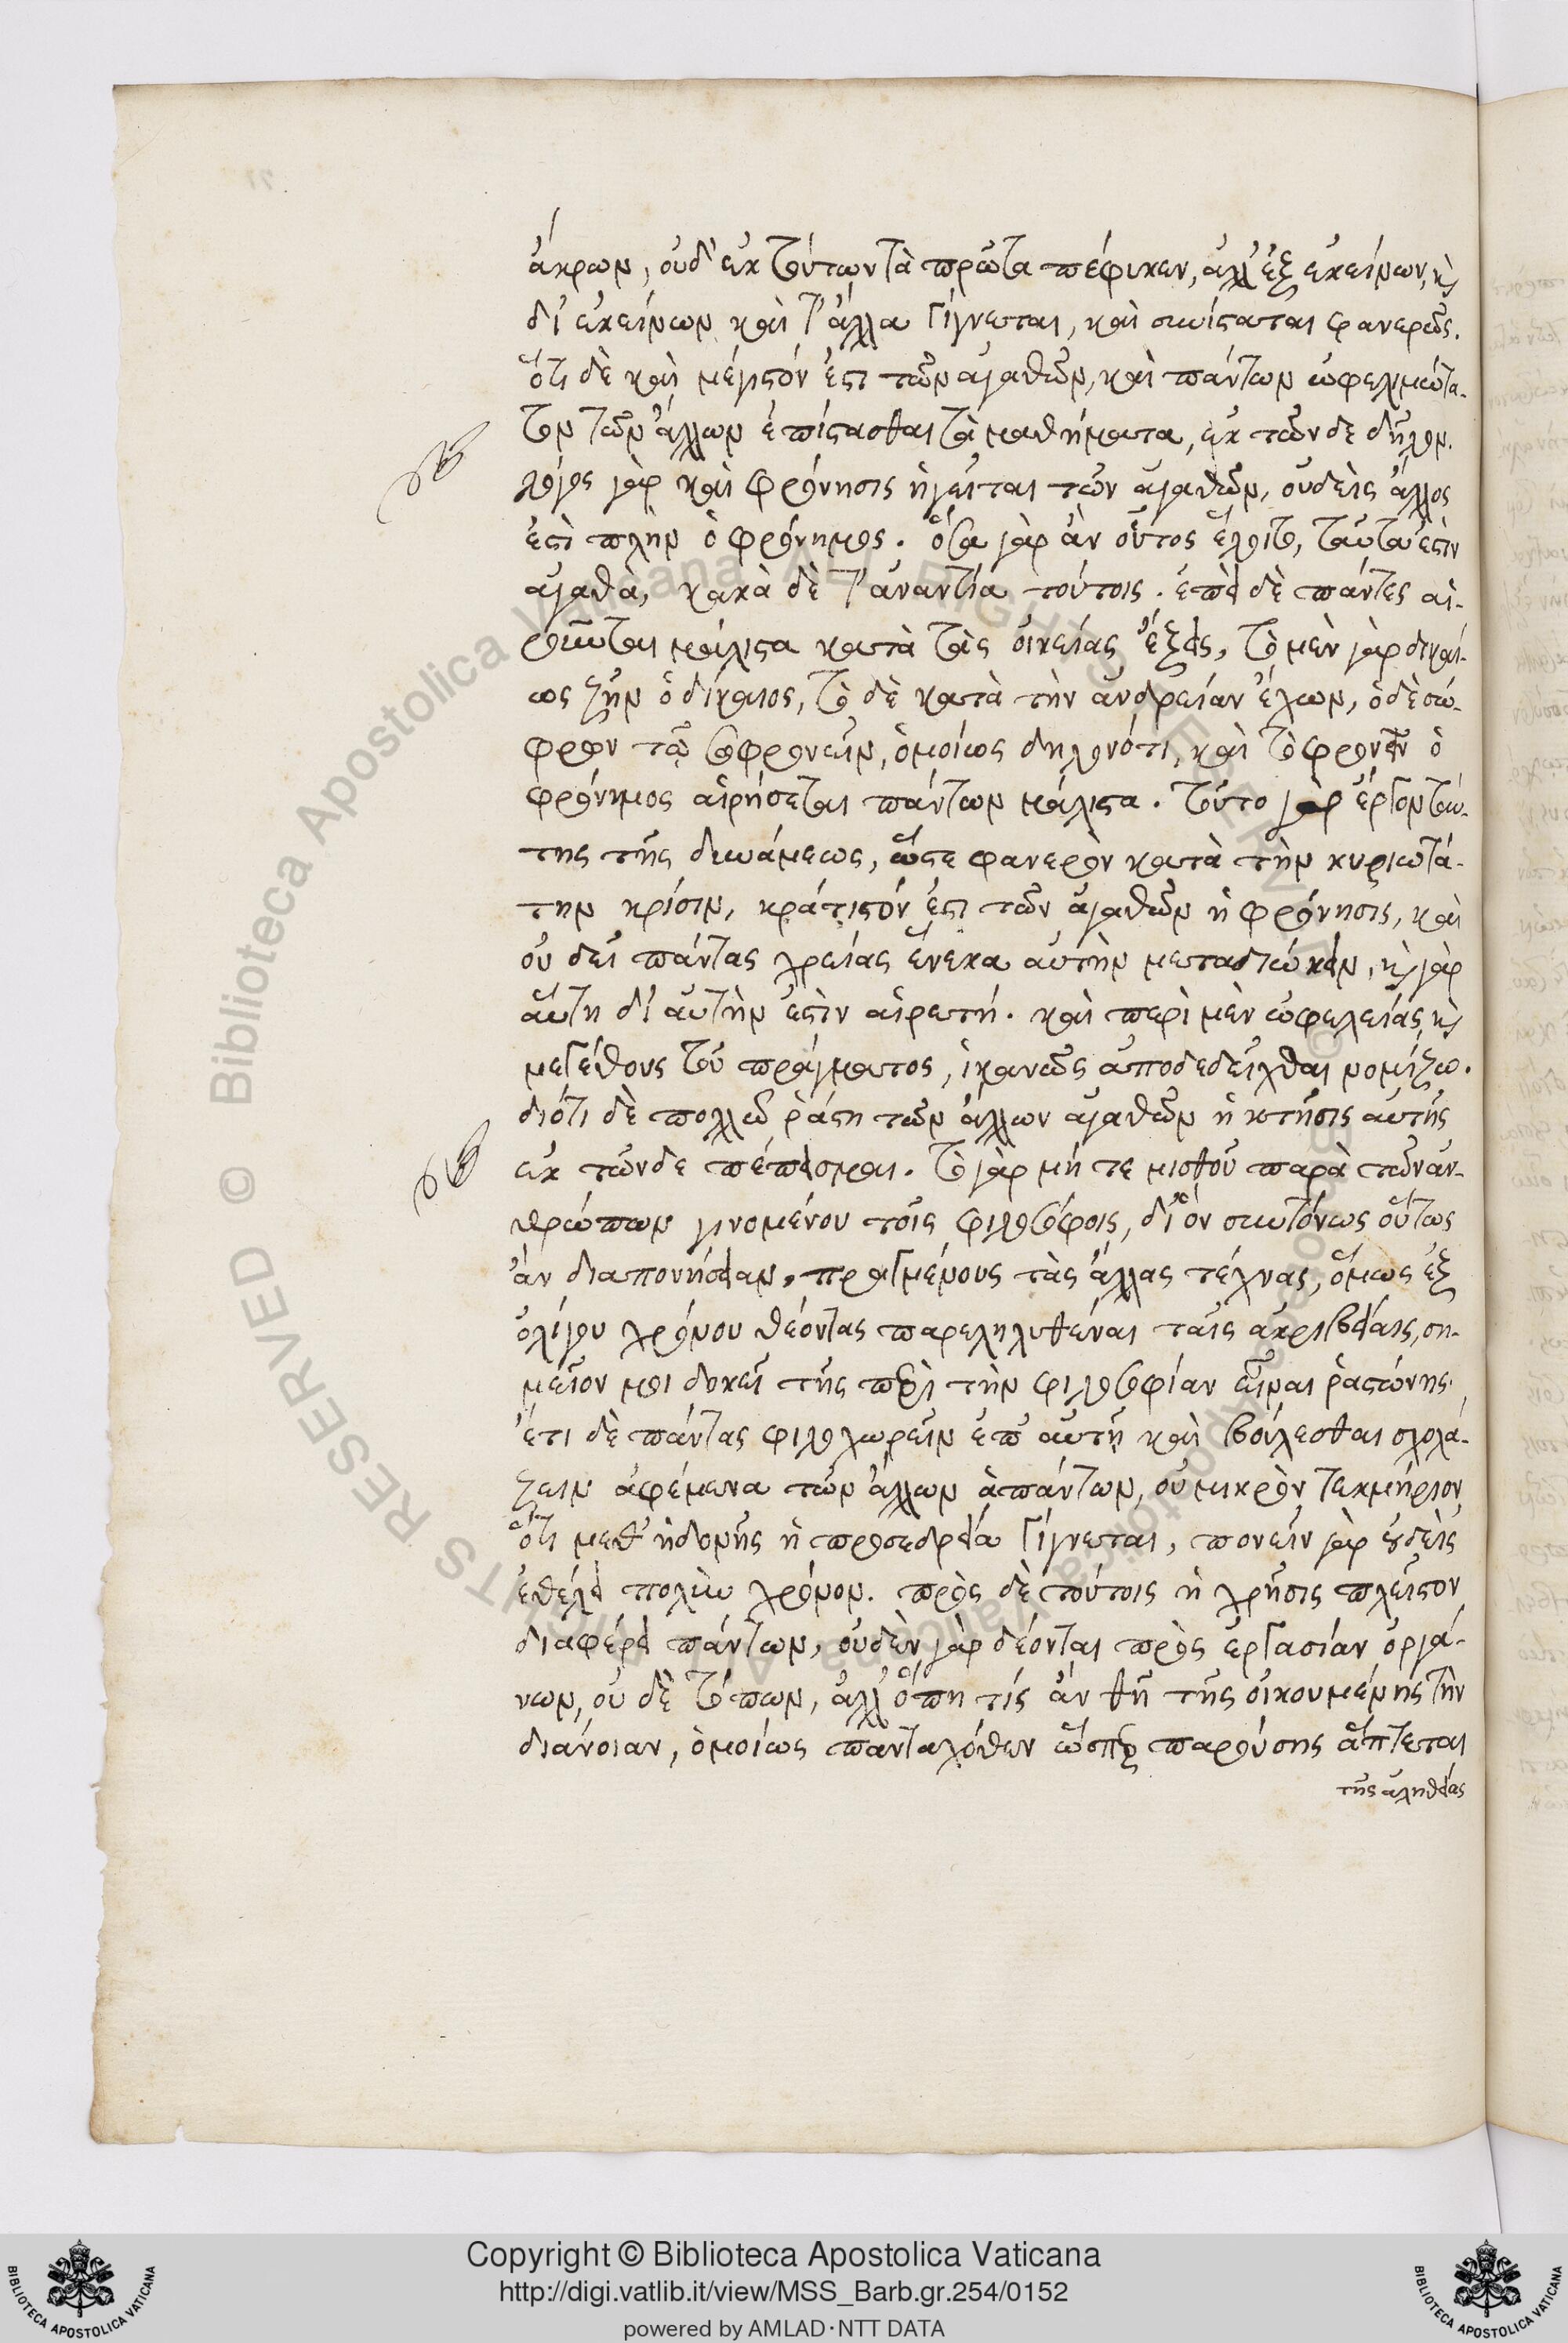 ἄκρων, οὐδ' ἐκ τούτων τὰ πρῶτα πέφυκεν, ἀλλ' ἐξ ἐκείνων, κ̀
δι' ἐκείνων καὶ τ' ἄλλα γίγνεται, καὶ συνίσταται φανερῶς.
ὅτι δὲ καὶ μέγιστόν ἐστι τῶν ἀγαθῶν, καὶ πάντων ὠφελιμώτα-
τον τῶν ἄλλων ἐπίστασθαι τὰ μαθήματα, ἐκ τῶν δε δῆλον.
λόγος γὰρ καὶ φρόνησις ἡγεῖται τῶν ἀγαθῶν, οὐδεὶς ἄλλος
ἐστὶ πλὴν ὁ φρόνιμος. ὅσα γὰρ ἂν οὗτος ἕλοιτο, ταῦτα ἐστὶν
ἀγαθὰ, κακὰ δὲ τ' ἀναντία τούτοις. ἐπεὶ δὲ πάντες αἱ-
ροῦνται μάλιστα κατὰ τὰς οἰκείας ἕξεις, τὸ μὲν γὰρ δικαί-
ως ζῆν ὁ δίκαιος, τὸ δὲ κατὰ τὴν ἀνδρείαν ἔχων, ὁ δὲ σώ-
φρον τῷ σωφρονεῖν, ὁμοίως δηλονότι, καὶ τὸ φρονεῖν ὁ
φρόνιμος αἱρήσεται πάντων μάλιστα. τοῦτο γὰρ ἔργον ταύ-
της τῆς δυνάμεως, ὥστε φανερὸν κατὰ τὴν κυριωτά-
την κρίσιν, κράτιστόν ἐστι τῶν ἀγαθῶν ἡ φρόνησις, καὶ
οὐ δεῖ πάντας χρείας ἕνεκα αὐτὴν μεταδιώκειν, κ̀ γὰρ
αὕτη δι' αὑτὴν ἐστὶν αἱρετή. καὶ περὶ μὲν ὠφελείας κ̀
μεγέθους τοῦ πράγματος, ἱκανῶς ἀποδεδεῖχθαι νομίζω.
διότι δὲ πολλῷ ῥάστη τῶν ἄλλων ἀγαθῶν ἡ κτῆσις αὐτῆς
ἐκ τῶνδε πέπεισμαι. τὸ γὰρ μή τε μισθοῦ παρὰ τῶν ἀν-
θρώπων γινομένου τοῖς φιλοσόφοις, δι' ὃν συντόνως οὕτως
ἂν διαπονήσειαν, πραγμένους τὰς ἄλλας τέχνας, ὅμως ἐξ
ὀλίγου χρόνου θέοντας παρεληλυθέναι ταῖς ἀκριβείαις, ση-
μεῖον μοι δοκεῖ τῆς περὶ τὴν φιλοσοφίαν εἶναι ῥαστώνης.
ἔτι δὲ πάντας φιλοχωρεῖν ἐπ' αὐτῇ καὶ βούλεσθαι σχολά-
ζειν ἀφέμενα τῶν ἄλλων ἁπάντων, οὐ μικρὸν τεκμήριον,
ὅτι μεθ' ἡδονῆς ἡ προσεδρεία γίγνεται, πονεῖν γὰρ οὐδεὶς
ἐθέλει πολὺν χρόνον. πρὸς δὲ τούτοις ἡ χρῆσις πλεῖστον
διαφέρει πάντων, οὐδὲν γὰρ δέονται πρὸς ἐργασίαν ὀργά-
νων, οὐ δὲ τόπων, ἀλλ' ὅπη τίς ἂν θῇ τῆς οἰκουμένης τὴν
διάνοιαν, ὁμοίως πανταχόθεν ὥσπερ παρούσης ἅπτεται
τῆς ἀληθείας
Copyright © Biblioteca Apostolica Vaticana
http://digi.vatlib.it/view/MSS_Barb.gr.254/0152
powered by AMLAD·NTT DATA